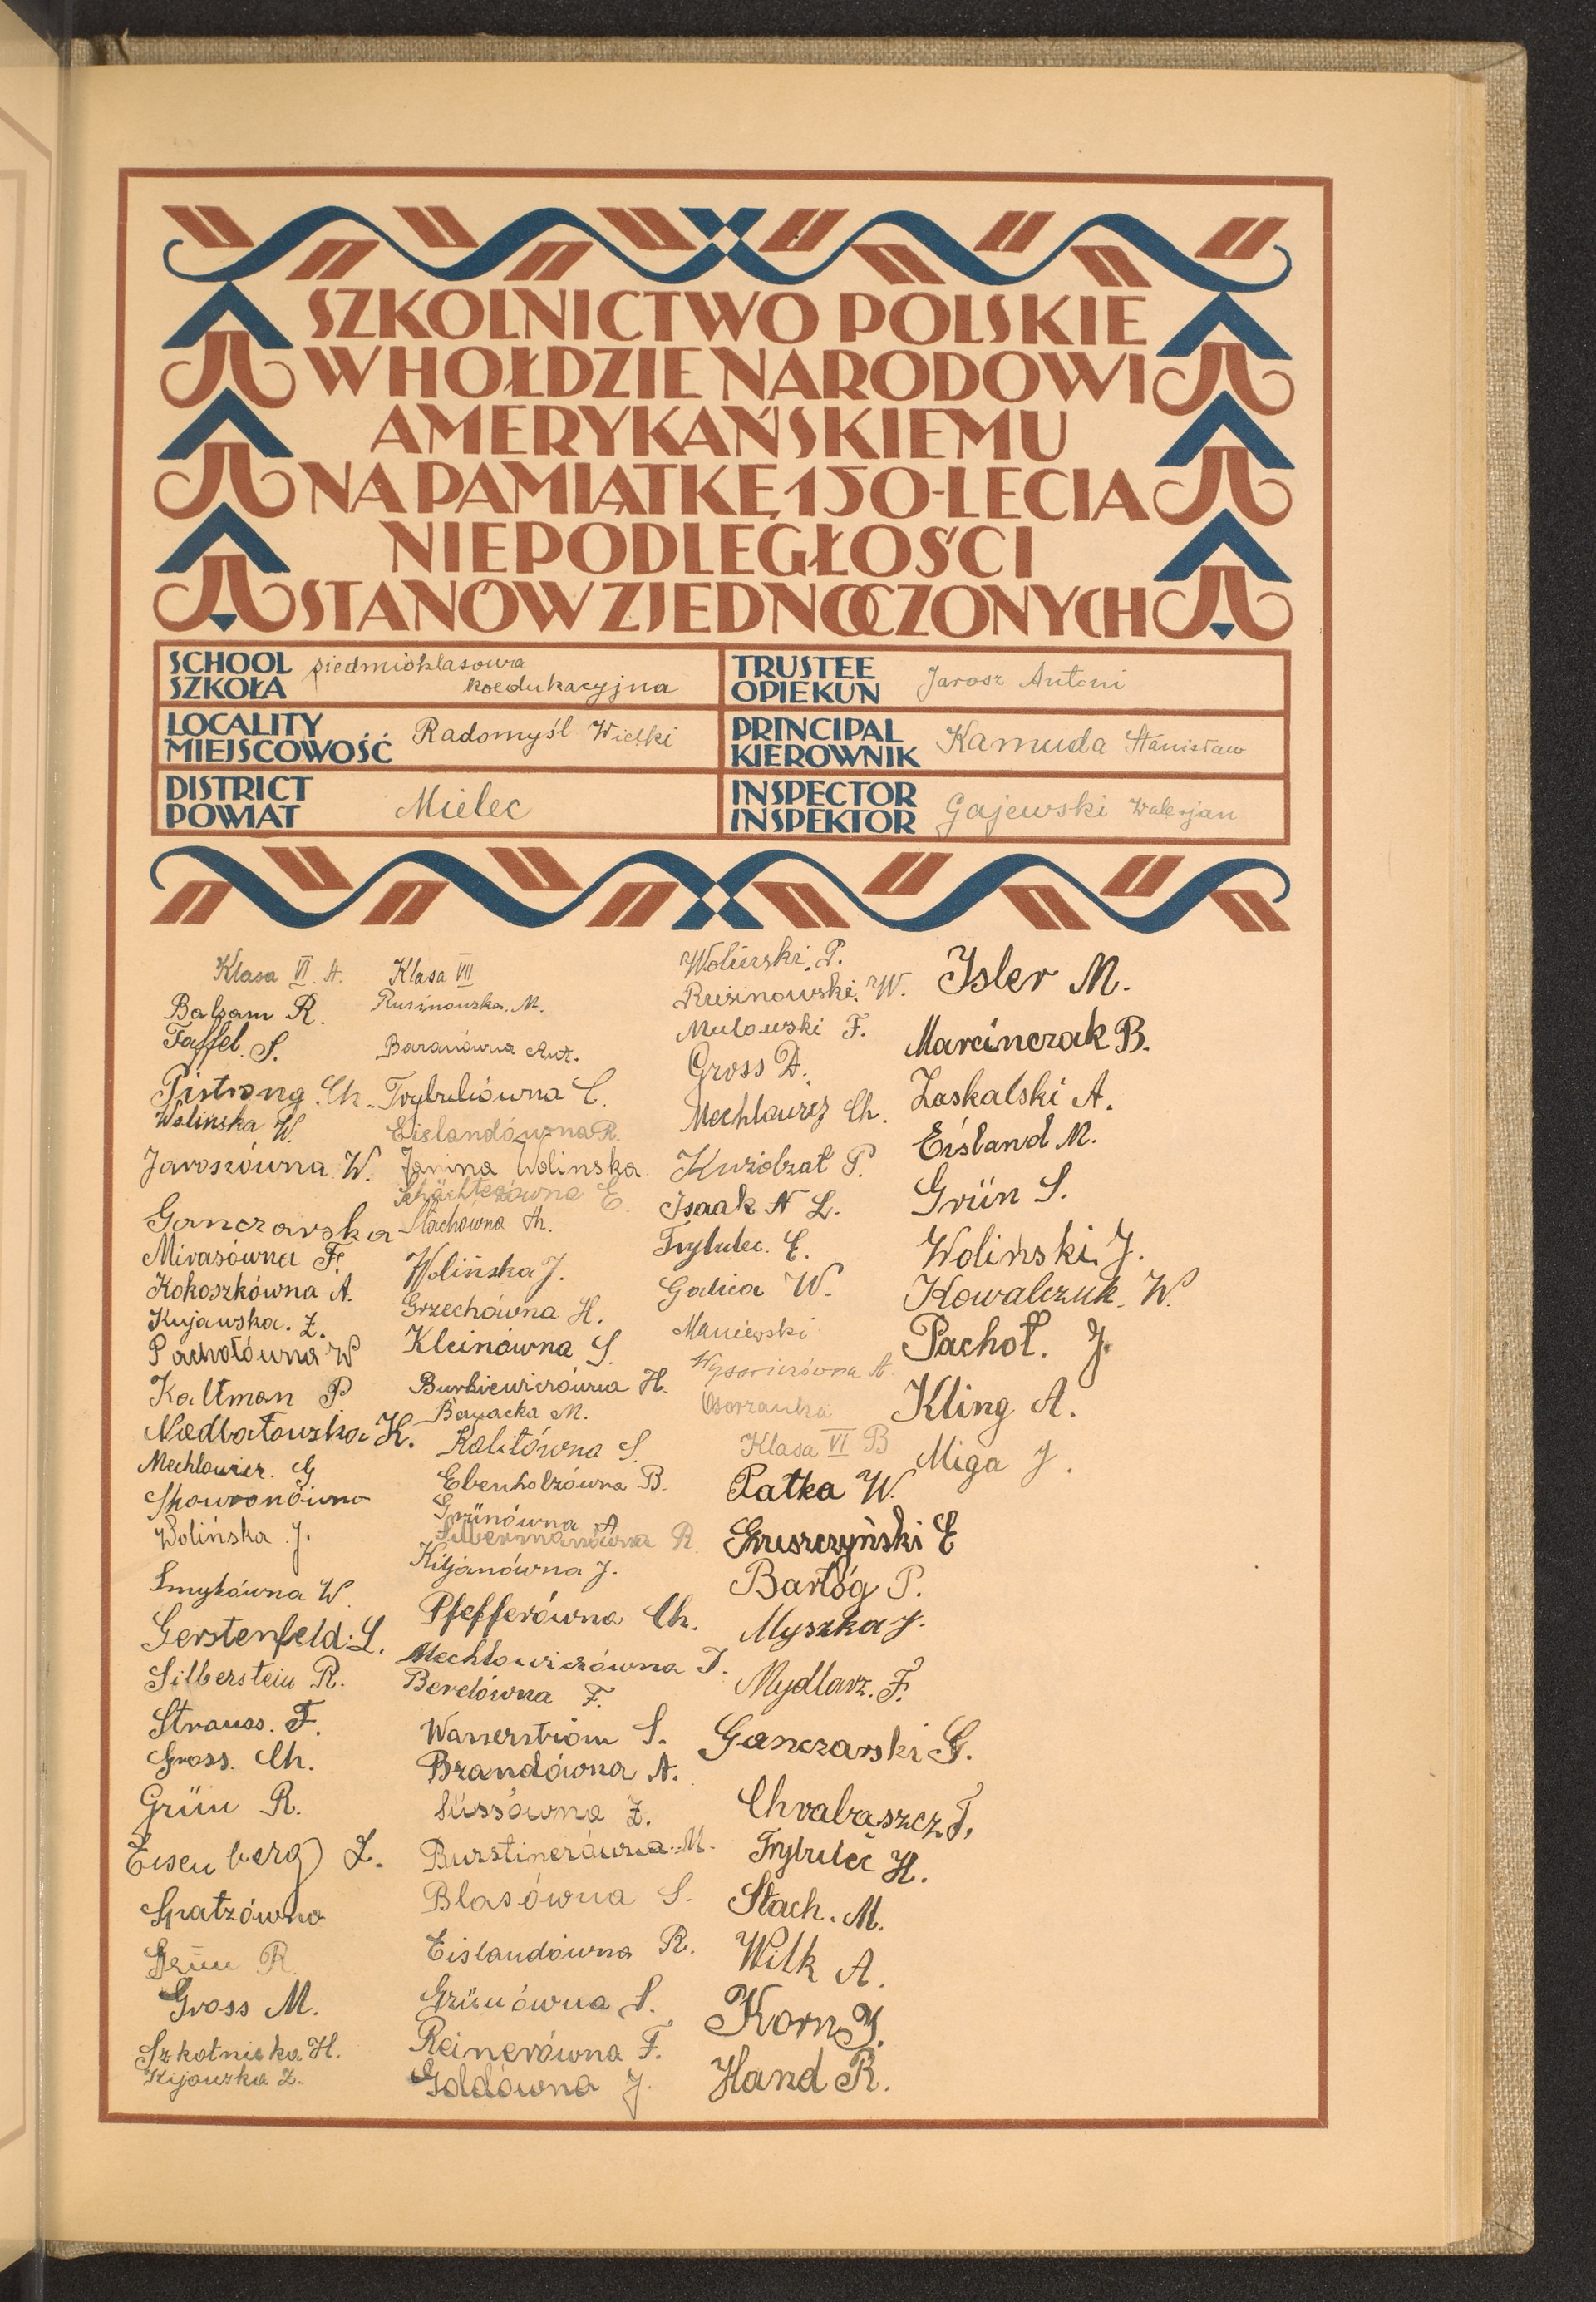 SZKOLNICTWO POLSKIE
W HOŁDZIE NARODOWI
AMERYKAŃSKIEMU
NA PAMIĄTKĘ 150-LECIA
NIEPODLEGŁOŚCI
STANÓW ZJEDNOCZONYCH
SCHOOL
SZKOŁA
siedmioklasowa
koedukacyjna
TRUSTEE
OPIEKUN
Jarosz Antoni
LOCALITY
MIEJSCOWOŚĆ
Radomyśl Wielki
PRINCIPAL
KIEROWNIK
Kamuda Stanisław
DISTRICT
POWIAT
Mielec
INSPECTOR
INSPEKTOR
Gajewski Walerjan
Klasa VI A.
Balsam R.
Taffel S.
Pistrong Ch.
Wolińska W.
Jaroszówna W.
Ganczarska
Mirasówna F.
Kokoszkówna A.
Kujawska. Z.
Pachołówna W
Kaltman P
Niedbałowska K.
Mechlowicz. G
Skowronówna
Wolińska J.
Smykówna W.
Gerstenfeld. L.
Silberstein R.
Strauss. F.
Gross. Ch.
Grün R.
Eisenberg Z.
Spatzówna
Grün R.
Gross M.
Szkotnicka H.
Kijowska Z.
Klasa VII
Rusinowska. M.
Baranówna Ant.
Trybulówna C.
Eislandówna R.
Janina Wolinska
Schächterówna E
Stachowna M.
Wolińska J.
Grzechówna H.
Kleinówna S.
Burkiewiczówna H.
Bernacka M.
Kalitówna S.
Ebenholzówna B.
Grünówna A
Silbermanówna R.
Kiljanówna J.
Pfefferówna Ch.
Mechlowiczówna T.
Berelówna F.
Wasserström S.
Brandówna A.
Süssówna Z.
Burstinerówna M.
Blasówna S.
Eislandówna R.
Grünówna S.
Reinerówna F.
Goldówna J.
Woliński. P.
Rusinowski. W.
Mulowski F.
Gross D.
Mechlowicz Ch.
Kwiobzat P.
Isaak N L.
Trybulec. E.
Galica W.
Maniewski
Wysocizówna A.
Klasa VI B
Patka W.
Gruszczyński E
Bartłóg P.
Myszka J.
Mydlarz. F.
Ganczarski G.
Chrabąszcz T.
Trybulec H.
Stach. M.
Wilk A.
Korn J.
Hand R.
Isler M.
Marcinczak B.
Zaskalski A.
Eisland M.
Grün S.
Woliński J.
Kowalczuk. W.
Pachoł. J.
Kling A.
Miga J.